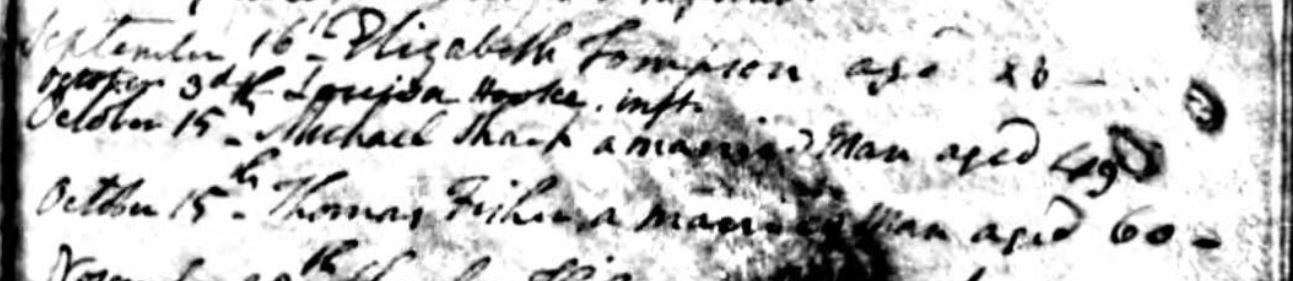 September 16th Elizabeth Tompson aged
October 3d Louisa Hooke. inft.
October 15th Michael a married Man aged 49
October 15th Thomas Fisher a married Man aged 60 -